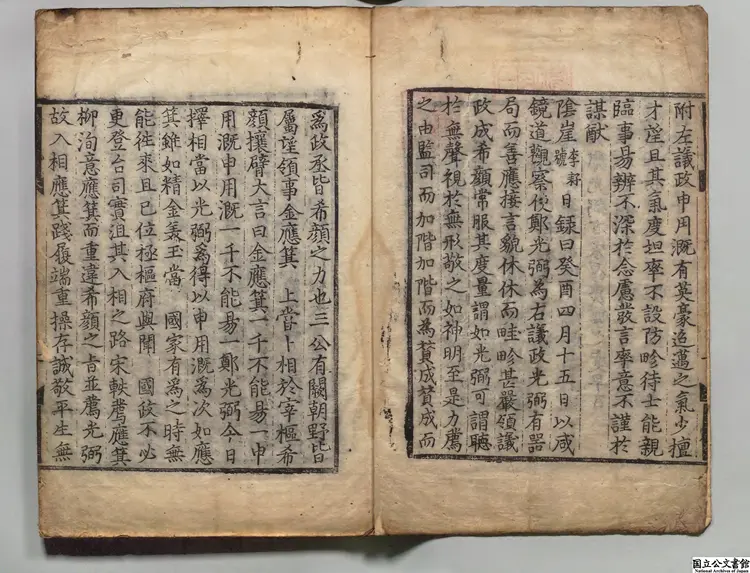 附左議政申用漑有英豪迈邁之氣少擅
才望且其氣度坦率不設防畛待士能親
臨事易辦不深於念慮發言率意不謹於
謀猷
陰崖號李耔日録曰癸酉四月十五日以咸
鏡道觀察使鄭光弼為右議政光弼有器
局而善應接言貌休休而畦畛甚嚴領議
政成希顔常服其度量謂如光弼可謂聽
於無聲視於無形敬之如神明至是力薦
之由監司而加階加階而為賛成賛成而
爲政丞皆希顔之力也三公有闕朝野皆
屬望領事金應箕 上當卜相於宰樞希
顔攘臂大言曰金應箕一千不能易一申
用漑申用漑一千不能易一鄭光弼今日
擇相當以光弼爲得以申用漑爲次如應
箕雖如精金美玉當 國家有爲之時無
能徃來且已位極樞府與聞 國政不必
更登台司實沮其入相之路宋軼嘗應箕
柳洵意應箕而重違希顔之旨並薦光弼
故入相應箕踐履端重操存誠敬平生無
国立公文書館
National Archives of Japan